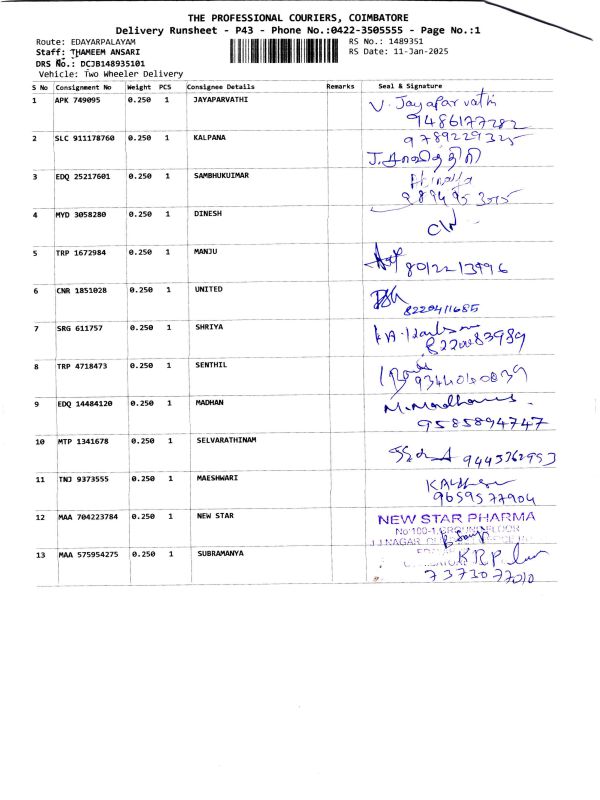 THE PROFESSIONAL COURIERS, COIMBATORE
Delivery Runsheet - P43 - Phone No.:0422-3505555 - Page No.:1
Route: EDAYARPALAYAM RS No.: 1489351
Staff: THAMEEM ANSARI RS Date: 11-Jan-2025
DRS No.: DCJB148935101
Vehicle: Two Wheeler Delivery
S No Consignment No Weight PCS Consignee Details Remarks Seal & Signature
1 APK 749095 0.250 1 JAYAPARVATHI V. Jayaparvathi
9486177282
2 SLC 911178760 0.250 1 KALPANA
3 EDQ 25217601 0.250 1 SAMBHUKUIMAR
4 MYD 3058280 0.250 1 DINESH
5 TRP 1672984 0.250 1 MANJU
8012213996
6 CNR 1851028 0.250 1 UNITED
8220411685
7 SRG 611757 0.250 1 SHRIYA
8220083989
8 TRP 4718473 0.250 1 SENTHIL
9344060039
9 EDQ 14484120 0.250 1 MADHAN M. Madhan
9585894747
10 MTP 1341678 0.250 1 SELVARATHINAM
9445362953
11 TNJ 9373555 0.250 1 MAESHWARI
9659577904
12 MAA 704223784 0.250 1 NEW STAR NEW STAR PHARMA
No:100-1, GROUND FLOOR
J.J.NAGAR
13 MAA 575954275 0.250 1 SUBRAMANYA
7373077010